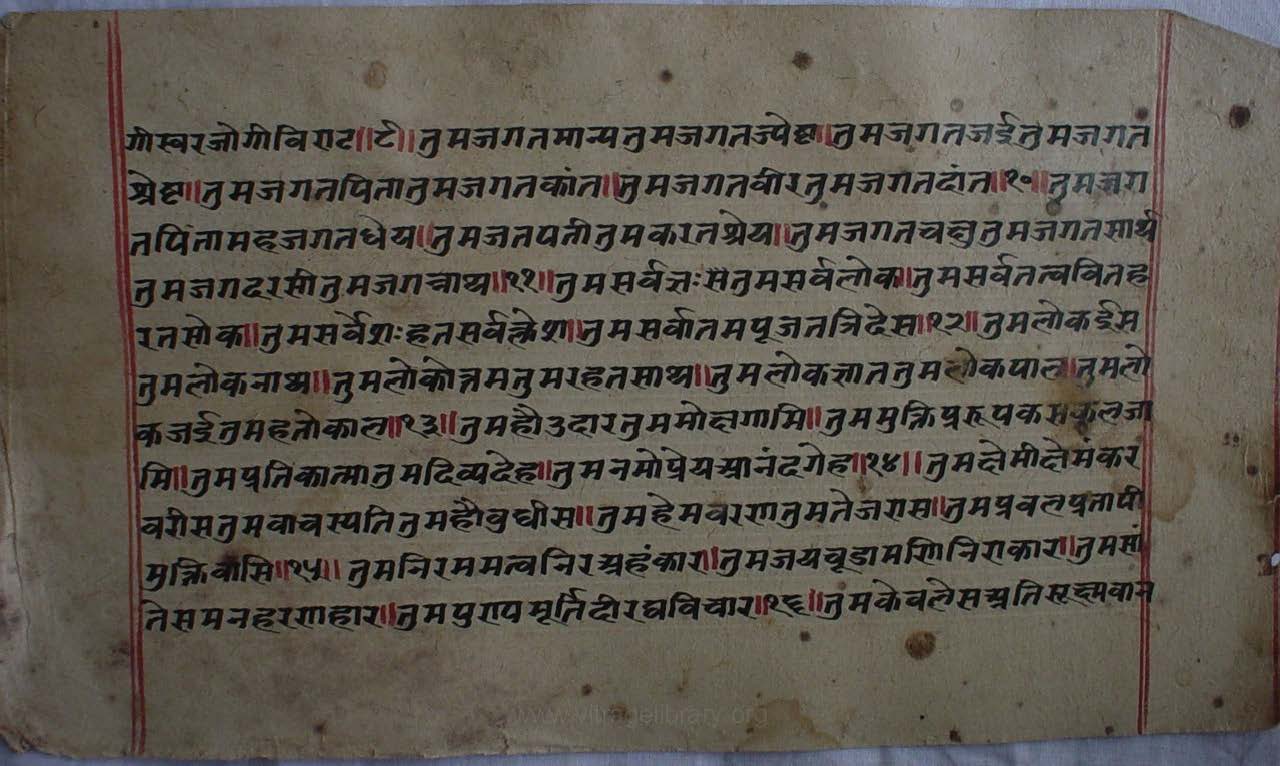 गीस्वरजोगीविराट॥९॥तुमजगतमान्यतुमजगतज्येष्ट॥तुमजगतजईतुमजगत
श्रेष्ट॥तुमजगतपितातुमजगतकांत॥तुमजगतवीरतुमजगतदांत॥१०॥तुमजग
तपितामहजगतधेय॥तुमजतपतीतुमकरतश्रेय॥तुमजगतचक्षुतुमजगतसार्थ
तुमजगदरसीतुमजगन्नाथ॥११॥तुमसर्वज्ञःसतुमसर्वलोक॥तुमसर्वतत्ववितह
रतसोक॥तुमसर्वेशःहतसर्वक्लेश॥तुमसर्वातमपूजतत्रिदेस॥१२॥तुमलोकईस
तुमलोकनाथ॥तुमलोकोत्तमतुमरहतसाथ॥तुमलोकज्ञाततुमलोकपाल॥तुमलो
कजईतुमहतोकाल॥१३॥तुमहौउदारतुममोक्षगामि॥तुममुक्तिप्ररूपकसकलजा
मि॥तुमप्रतिकात्मातुमदिव्यदेह॥तुमनमोप्रेयआनंदगेह॥१४॥तुमक्षेमीक्षेमंकर
वरीसतुमवाचस्पतितुमहौवुधीस॥तुमहेमवरणतुमतेजरास॥तुमप्रवलप्रतापी
मुक्तिवासि॥१५॥तुमनिरममत्वनिरअहंकार॥तुमजयचूडामणिनिराकार॥तुमसां
तेसमनहरणहार॥तुमपुराणमूर्तिदीरघविचार॥१६॥तुमकेवलेसअतिसूक्ष्मवान
www.vitragelibrary.org